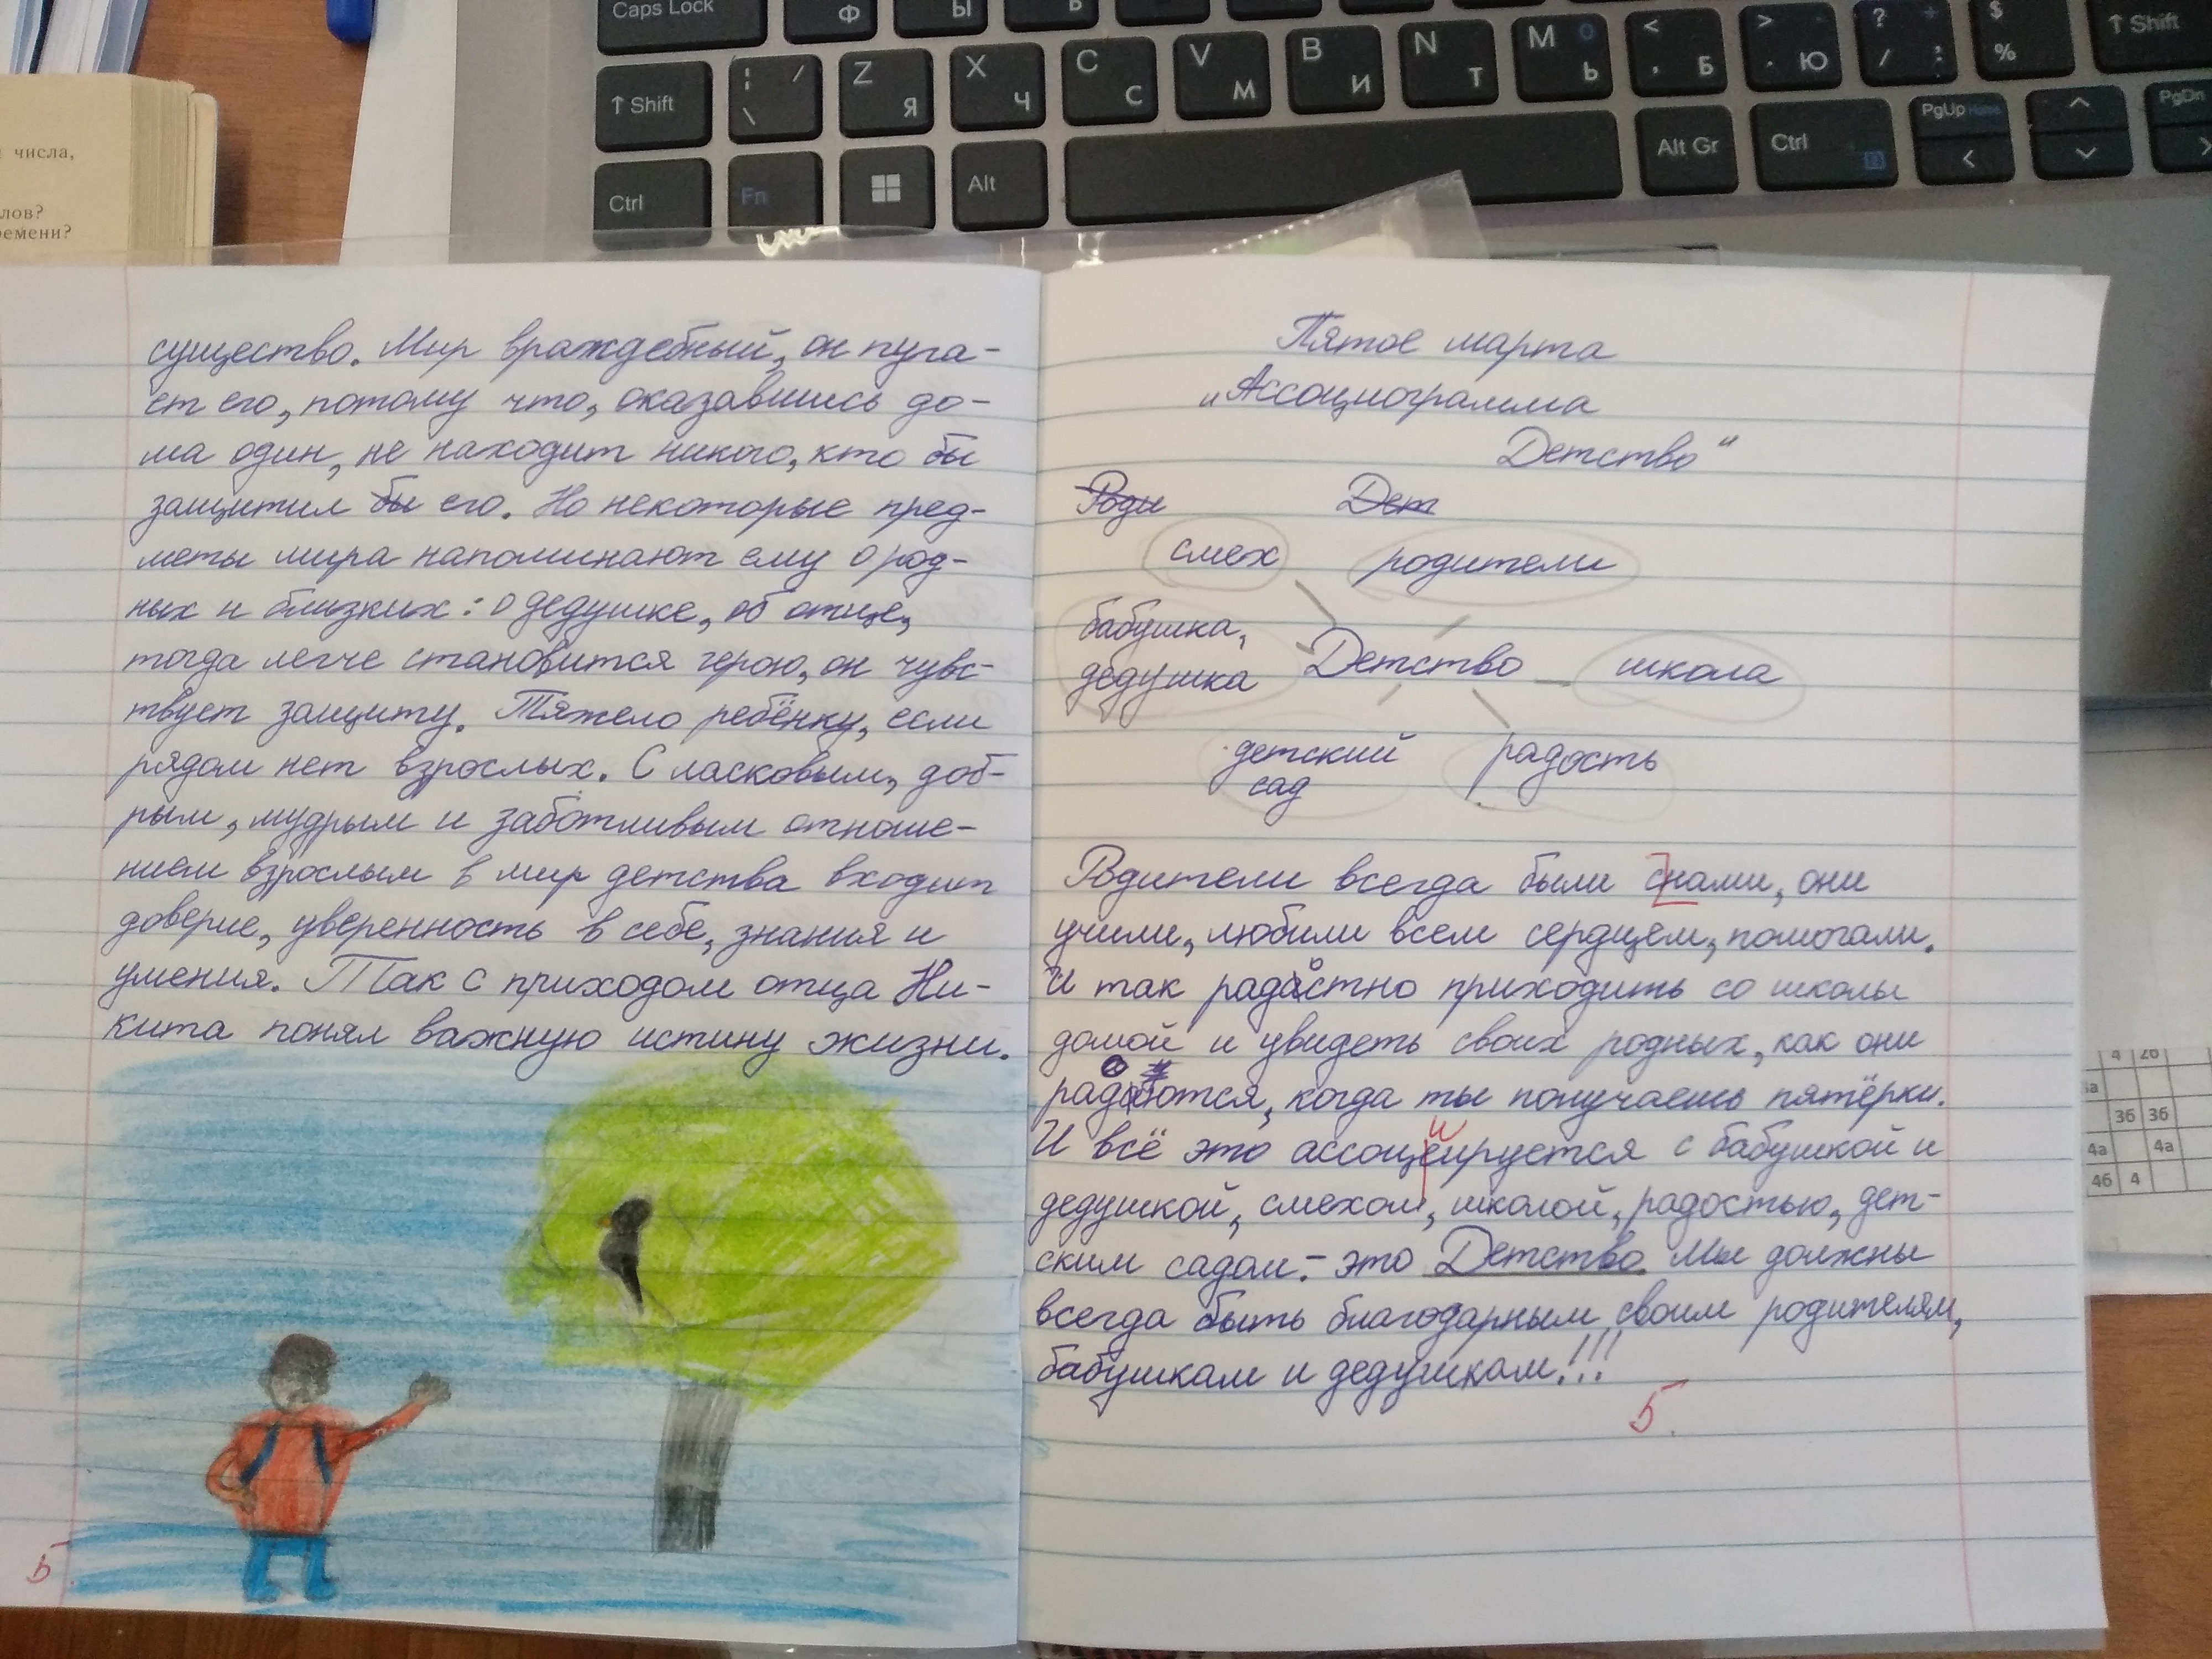 Caps Lock
Ф
Ы
В
↑ Shift
¦ / \
Z Я
X Ч
C С
V М
B И
N Т
M О Ь
< , Б
> . Ю
? /
$ %
↑ Shift
Ctrl
Fn
Alt
Alt Gr
Ctrl
PgUp Home
<
PgDn
>
числа,
лов?
ремени?
существо. Мир враждебный, он пуга-
ет его, потому что, оказавшись до-
ма один, не находит никого, кто бы
защитил бы его. Но некоторые пред-
меты мира напоминают ему о род-
ных и близких: о дедушке, об отце,
тогда легче становится герою, он чувс-
твует защиту. Тяжело ребёнку, если
рядом нет взрослых. С ласковым, доб-
рым, мудрым и заботливым отноше-
нием взрослым в мир детства входит
доверие, уверенность в себе, знания и
умения. Так с приходом отца Ни-
кита понял важную истину жизни.
5
Пятое марта
„Ассоциограмма
Детство“
Роди Дет
смех родители
бабушка,
дедушка Детство школа
детский
сад радость
Родители всегда были с нами, они
учили, любили всем сердцем, помогали.
И так радостно приходить со школы
домой и увидеть своих родных, как они
радуются, когда ты получаешь пятёрки.
И всё это ассоцеиируется с бабушкой и
дедушкой, смехом, школой, радостью, дет-
ским садом. - это Детство. Мы должны
всегда быть благодарным своим родителям,
бабушкам и дедушкам!!!
5.
4 2б
3б 3б
4а 4а
4б 4